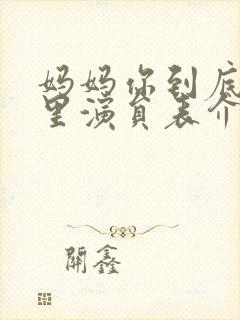 妈妈你到底
里演员表介
開鑫